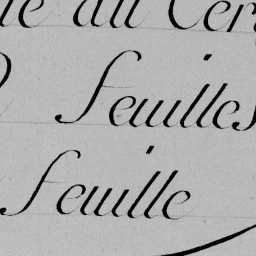 au Cer
feuilles
feuille